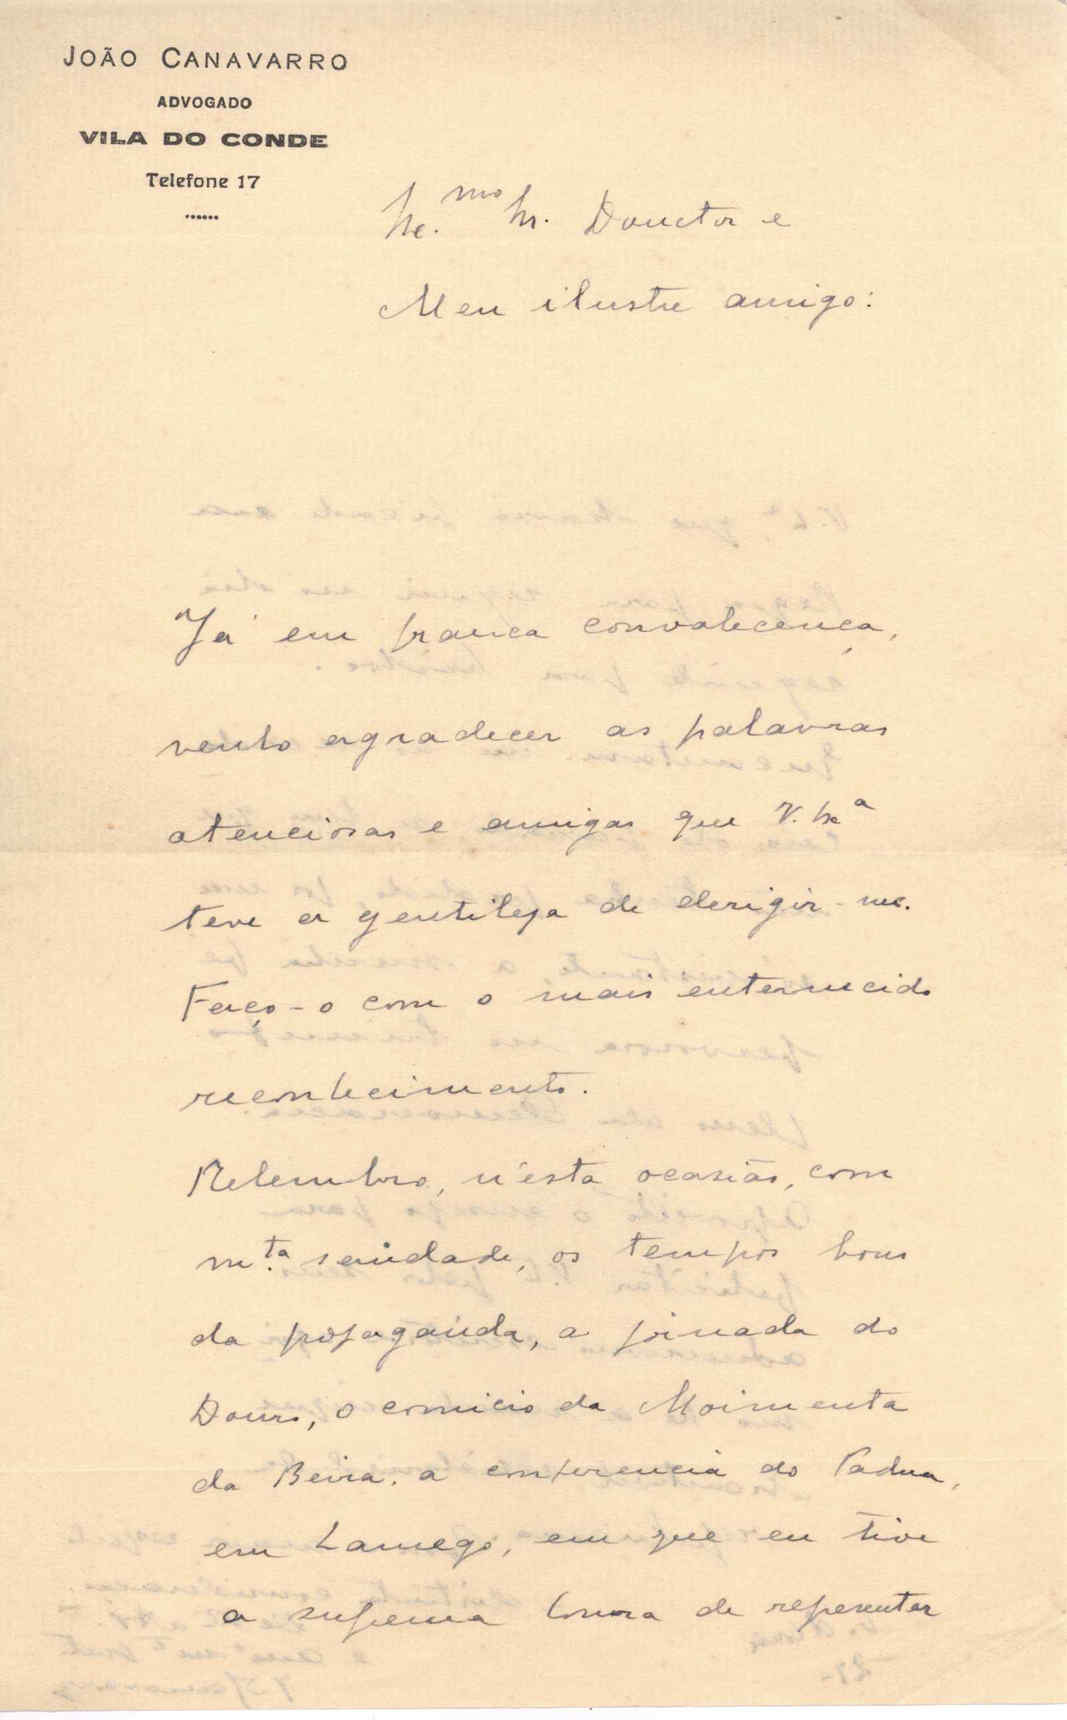 JOÃO CANAVARRO
ADVOGADO
VILA DO CONDE
Telefone 17
Ex.mo Sr. Douctor e
Meu ilustre amigo:
Já em franca convalecença,
venho agradecer as palavras
atenciosas e amigas que V. Exa
teve a gentileza de derigir-me.
Faço-o com o mais enternecido
reconhecimento.
Relembro, n'esta ocasião, com
m.ta saudade, os tempos bons
da propaganda, a jornada do
Douro, o comicio da Moimenta
da Beira, a conferencia do Padua,
em Lamego, em que eu tive
a suprema honra de representar